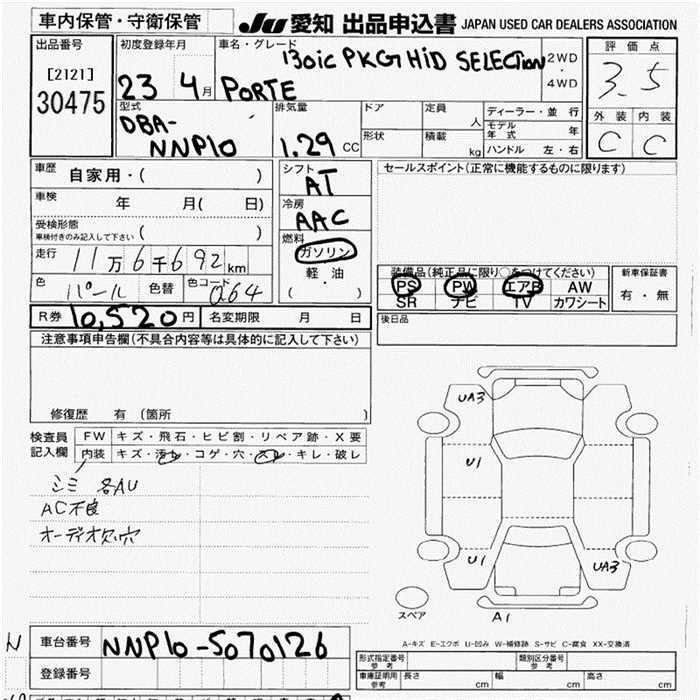 車内保管・守衛保管
JU 愛知 出品申込書 JAPAN USED CAR DEALERS ASSOCIATION
出品番号
[2121]
30475
初度登録年月
23 4月
車名・グレード
130ic PKG HiD SELECTION
PORTE
2WD
・
4WD
評価点
3.5
外装 内装
C C
型式
DBA-
NNP10
排気量
1.29 CC
ドア
形状
定員 人
積載 kg
ディーラー・並行
モデル年式 年
ハンドル 左・右
車歴 自家用・( )
車検 年 月( 日)
受検形態
車検付きのみ記入して下さい ( )
走行 11万6千692km
色 パール 色替 色コード 064
シフト
AT
冷房
AAC
燃料
ガソリン
軽・油
( ・ )
セールスポイント(正常に機能するものに限ります)
装備品(純正品に限り○をつけてください)
PS PW エアB AW
SR ナビ TV カワシート
新車保証書
有・無
R券 10,520円 名変期限 月 日
後日品
注意事項申告欄(不具合内容等は具体的に記入して下さい)
修復歴 有 (箇所 )
検査員
記入欄
FW キズ・飛石・ヒビ割・リペア跡・X要
内装 キズ・汚れ・コゲ・穴・スレ・キレ・破レ
シミ 各AU
AC不良
オーディオ欠穴
UA3
U1
U1
UA3
A1
スペア
A-キズ E-エクボ U-凹み W-補修跡 S-サビ C-腐食 XX-交換済
車台番号 NNP10-5070126
登録番号
形式指定番号
参考
類別区分番号
参考
車庫証明用
参考
長さ cm 幅 cm 高さ cm